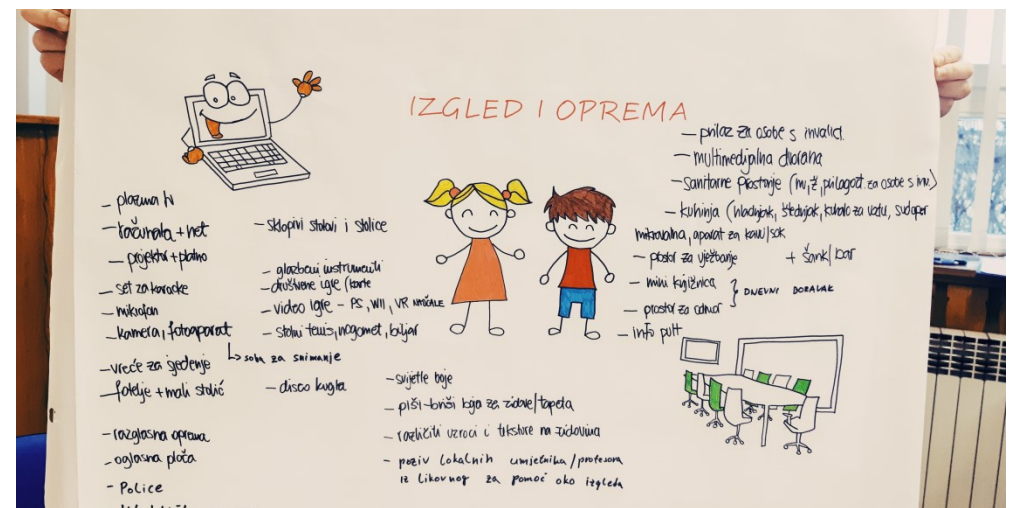 IZGLED I OPREMA
- plazma tv
- računala + net
- projektor + platno
- set za karaoke
- mikrofon
- kamera, fotoaparat
↳ soba za snimanje
- vreće za sjedenje
- fotelje + mali stolić
- razglasna oprema
- oglasna ploča
- Police
- sklopivi stolovi i stolice
- glazbeni instrumenti
- društvene igre (karte
- video igre - PS, WII, VR
- stolni tenis, nogomet, biljar
- disco kugla
- svijetle boje
- piši-briši boja za zidove/tapeta
- različiti uzroci i teksture na zidovima
- poziv lokalnih umjetnika/profesora
iz likovnog za pomoć oko izgleda
- prilaz za osobe s invalid.
- multimedijalna dvorana
- sanitarne prostorije (m, ž, prilagođ. za osobe s inv.)
- kuhinja (hladnjak, štednjak, kuhalo za vodu, sudoper
mikrovalna, aparat za kavu/sok
- prostor za vježbanje + šank/bar
- mini knjižnica
- prostor za odmor } DNEVNI BORAVAK
- info pult